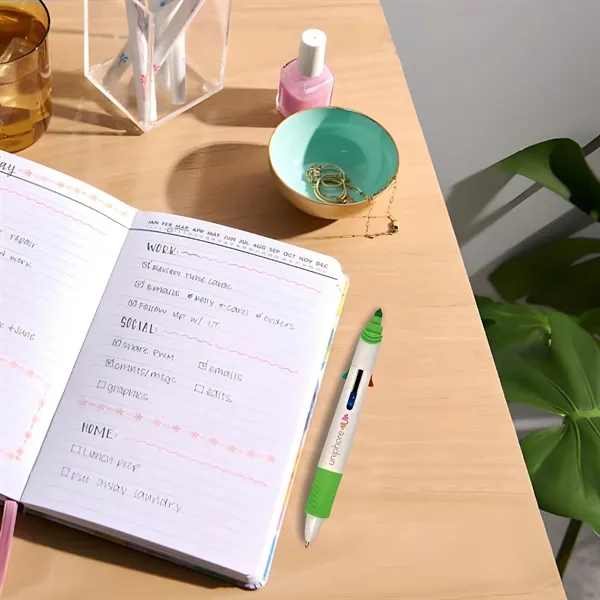 ay
JAN FEB MAR APR MAY JUN JUL AUG SEP OCT NOV DEC
repair
work
+ June
WORK:
Review Time Cards
Emails Holly + Carol orders
Follow up w/ I.T.
SOCIAL:
Share PWM
emails
cmnts/msgs
edits
graphics
HOME:
Lunch prep
put away laundry
uniphore